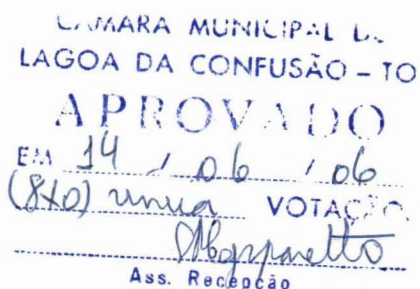 CAMARA MUNICIPAL D
LAGOA DA CONFUSÃO – TO
APROVADO
EM 14 / 06 / 06
(8x0) unica VOTAÇÃO
Ass. Recepção